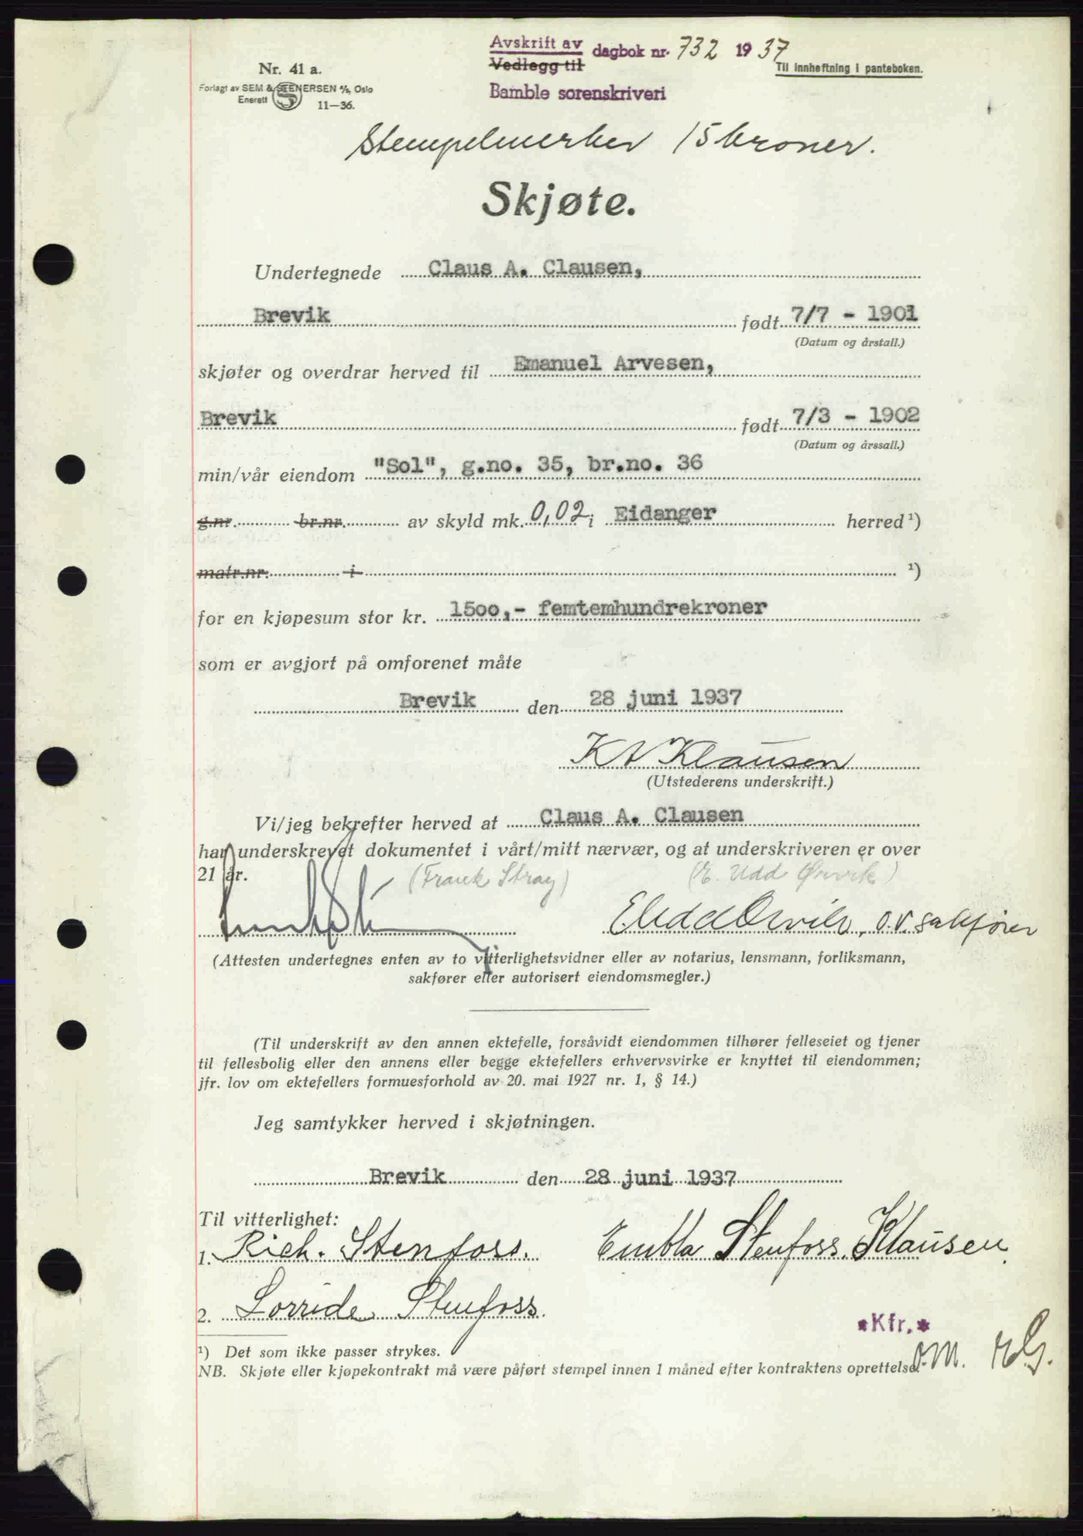 Avskrift av dagbok nr. 732 1937
Vedlegg til
Til innheftning i panteboken.
Bamble sorenskriveri
Nr. 41 a.
Forlagt av SEM & STENERSEN A/S, Oslo
Enerett S 11—36.
Stempelmerker 15 kroner.
Skjøte.
Undertegnede Claus A. Clausen,
Brevik født 7/7 - 1901
(Datum og årstall.)
skjøter og overdrar herved til Emanuel Arvesen,
Brevik født 7/3 - 1902
(Datum og årssall.)
min/vår eiendom "Sol", g.no. 35, br.no. 36
g.nr. br.nr. av skyld mk. 0,02 i Eidanger herred ¹)
matr.nr. i ¹)
for en kjøpesum stor kr. 1500,- femtemhundrekroner
som er avgjort på omforenet måte
Brevik den 28 juni 1937
K A Klausen
(Utstederens underskrift.)
Vi/jeg bekrefter herved at Claus A. Clausen
har underskrevet dokumentet i vårt/mitt nærvær, og at underskriveren er over
21 år. (Frank Stray) (E. Udd Ørvik)
o.r. sakfører
(Attesten undertegnes enten av to vitterlighetsvidner eller av notarius, lensmann, forliksmann,
sakfører eller autorisert eiendomsmegler.)
(Til underskrift av den annen ektefelle, forsåvidt eiendommen tilhører felleseiet og tjener
til fellesbolig eller den annens eller begge ektefellers erhvervsvirke er knyttet til eiendommen;
jfr. lov om ektefellers formuesforhold av 20. mai 1927 nr. 1, § 14.)
Jeg samtykker herved i skjøtningen.
Brevik den 28 juni 1937
Til vitterlighet:
1. Rich. Stenfoss. Embla Stenfoss Klausen
2. Lorride Stenfoss.
*Kfr.*
¹) Det som ikke passer strykes.
NB. Skjøte eller kjøpekontrakt må være påført stempel innen 1 måned efter kontraktens oprettelse.